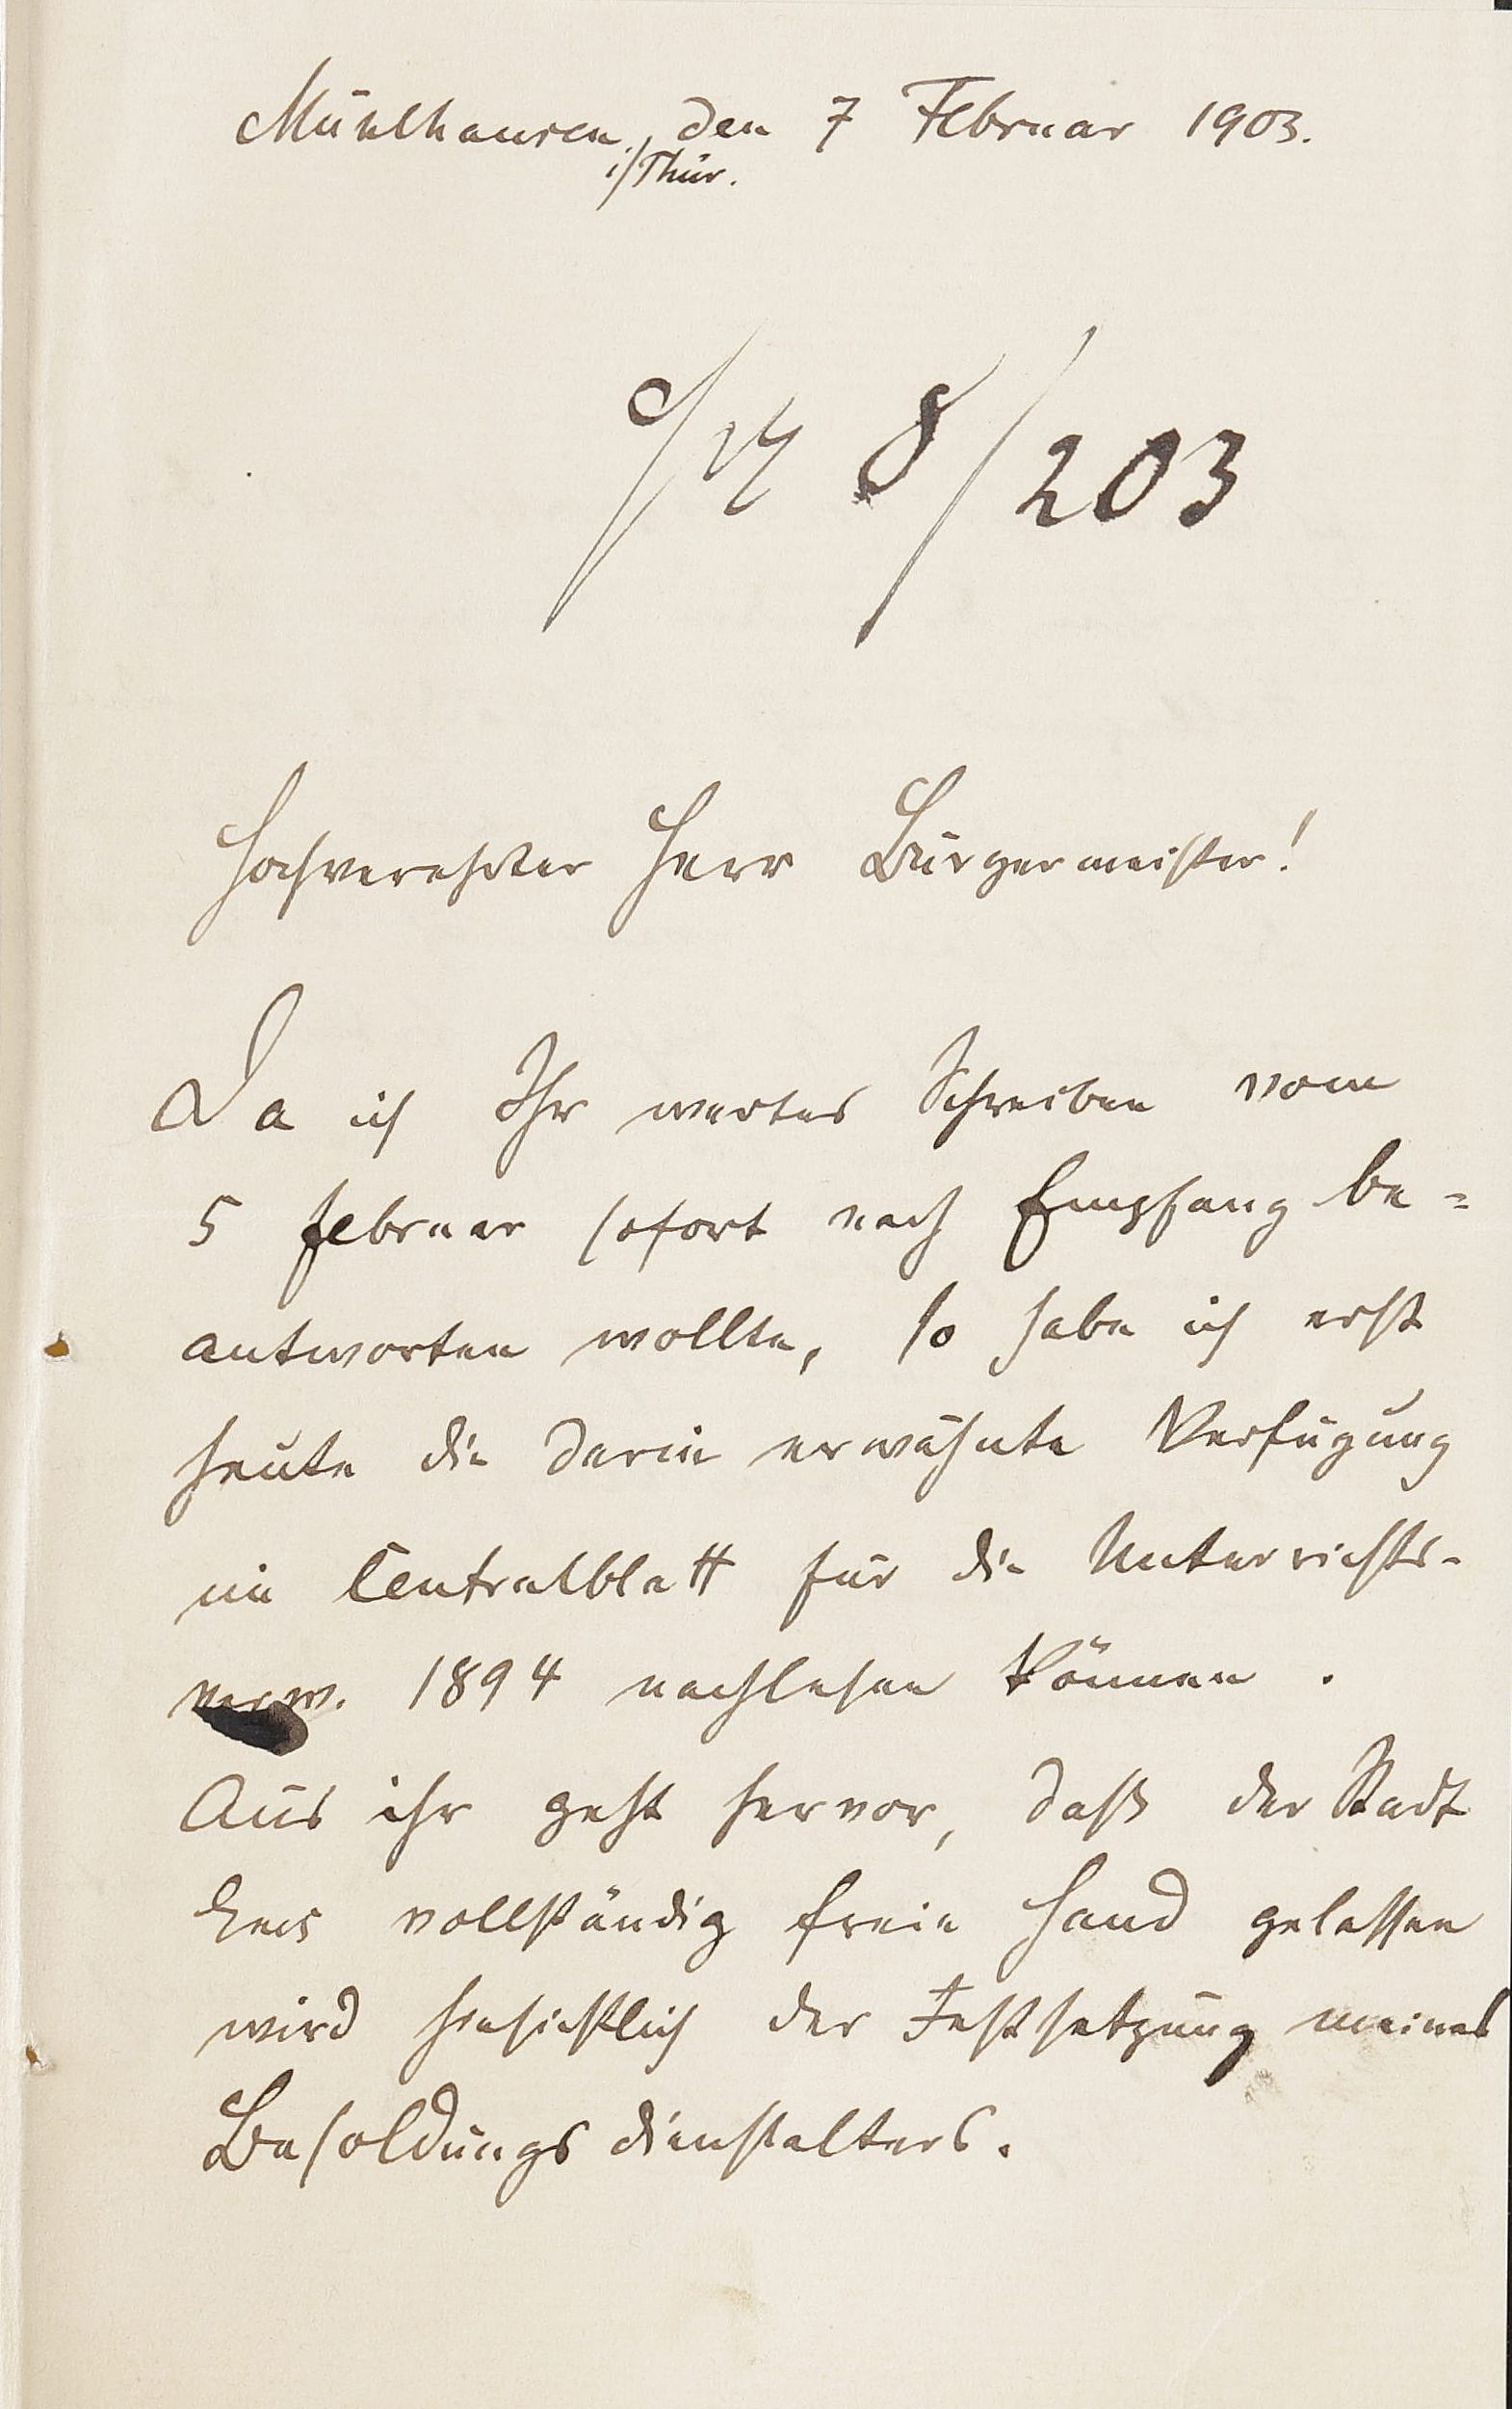 Mühlhausen, den 7 Februar 1903.
i/Thür.
8/203
Hochverehrter Herr Bürgermeister!
Da ich Ihr wertes Schreiben vom
5 Februar sofort nach Empfang be=
antworten wollte, so habe ich erst
heute die darin erwähnte Verfügung
im Centralblatt für die Unterrichts-
verw. 1894 nachlesen können.
Aus ihr geht hervor, daß der Stadt
vollständig freie Hand gelassen
wird hinsichtlich der Festsetzung meines
Besoldungsdienstalters.